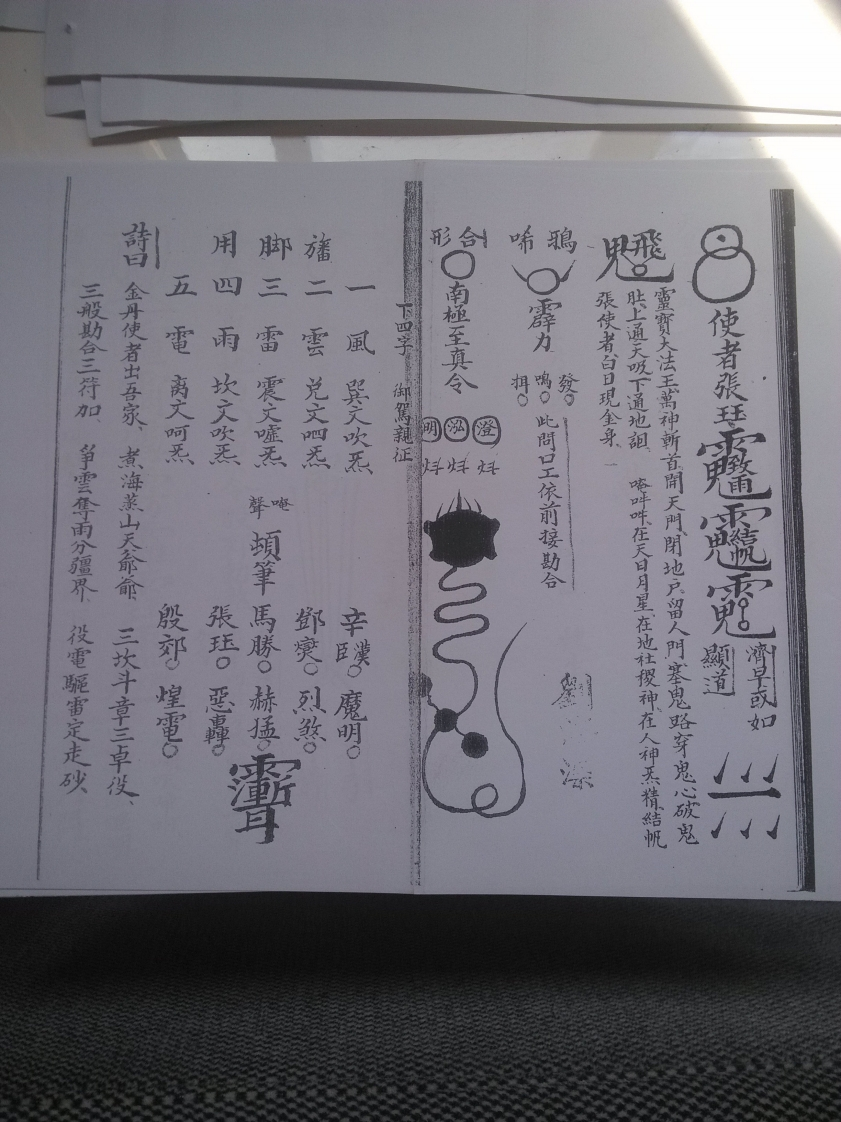 使者張珏
濟旱或如
顯道
靈寶大法王萬神斬首開天門閉地戶留人門塞鬼路穿鬼心破鬼
肚上通天吸下通地詛 唵吽吽在天日月星在地社稷神在人神炁精結帆
張使者白日現金身
鴉 唏
霹力
發 鳴 揖
此問口工依前接勘合
合形
南極至真令
澄 泓 明
下四字 御駕親征
一風 巽文吹炁 辛漢臣 魔明
旛 二雲 兌文呬炁 鄧燮 烈煞
脚 三雷 震文噓炁 唵聲 頓筆 馬勝 赫猛
用 四雨 坎文吹炁 張珏 惡轟
五電 离文呵炁 殷郊 煌電
詩曰 金丹使者出吾家、煮海蒸山天爺爺、三坎斗章三卓役、
三般勘合三符加、爭雲奪雨分疆界、役電驅雷定走砂、